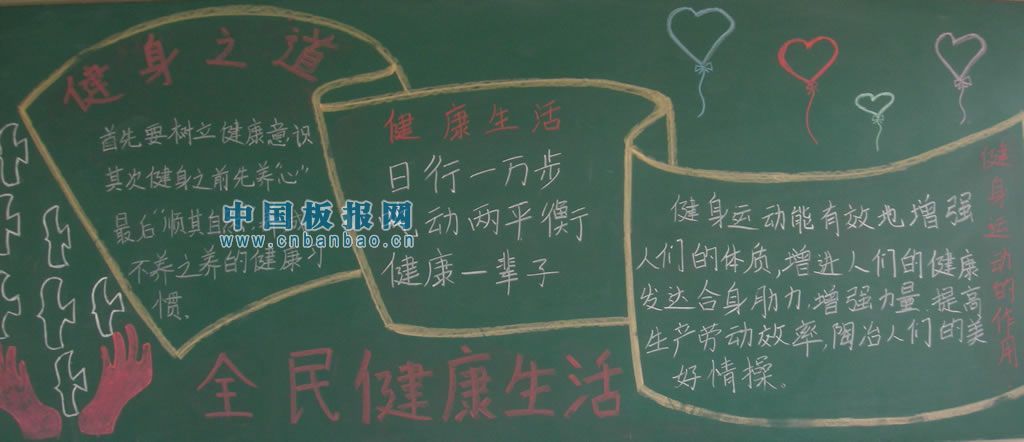 健身之道
首先要树立健康意识
其次健身之前先养"心"
最后"顺其自
不养之养的健康习
惯。
健康生活
日行一万步
动两平衡
健康一辈子
健身运动的作用
健身运动能有效地增强
人们的体质,增进人们的健康
发达合身肋力,增强力量,提高
生产劳动效率,陶冶人们的美
好情操。
全民健康生活
中国板报网
www.cnbanbao.cn